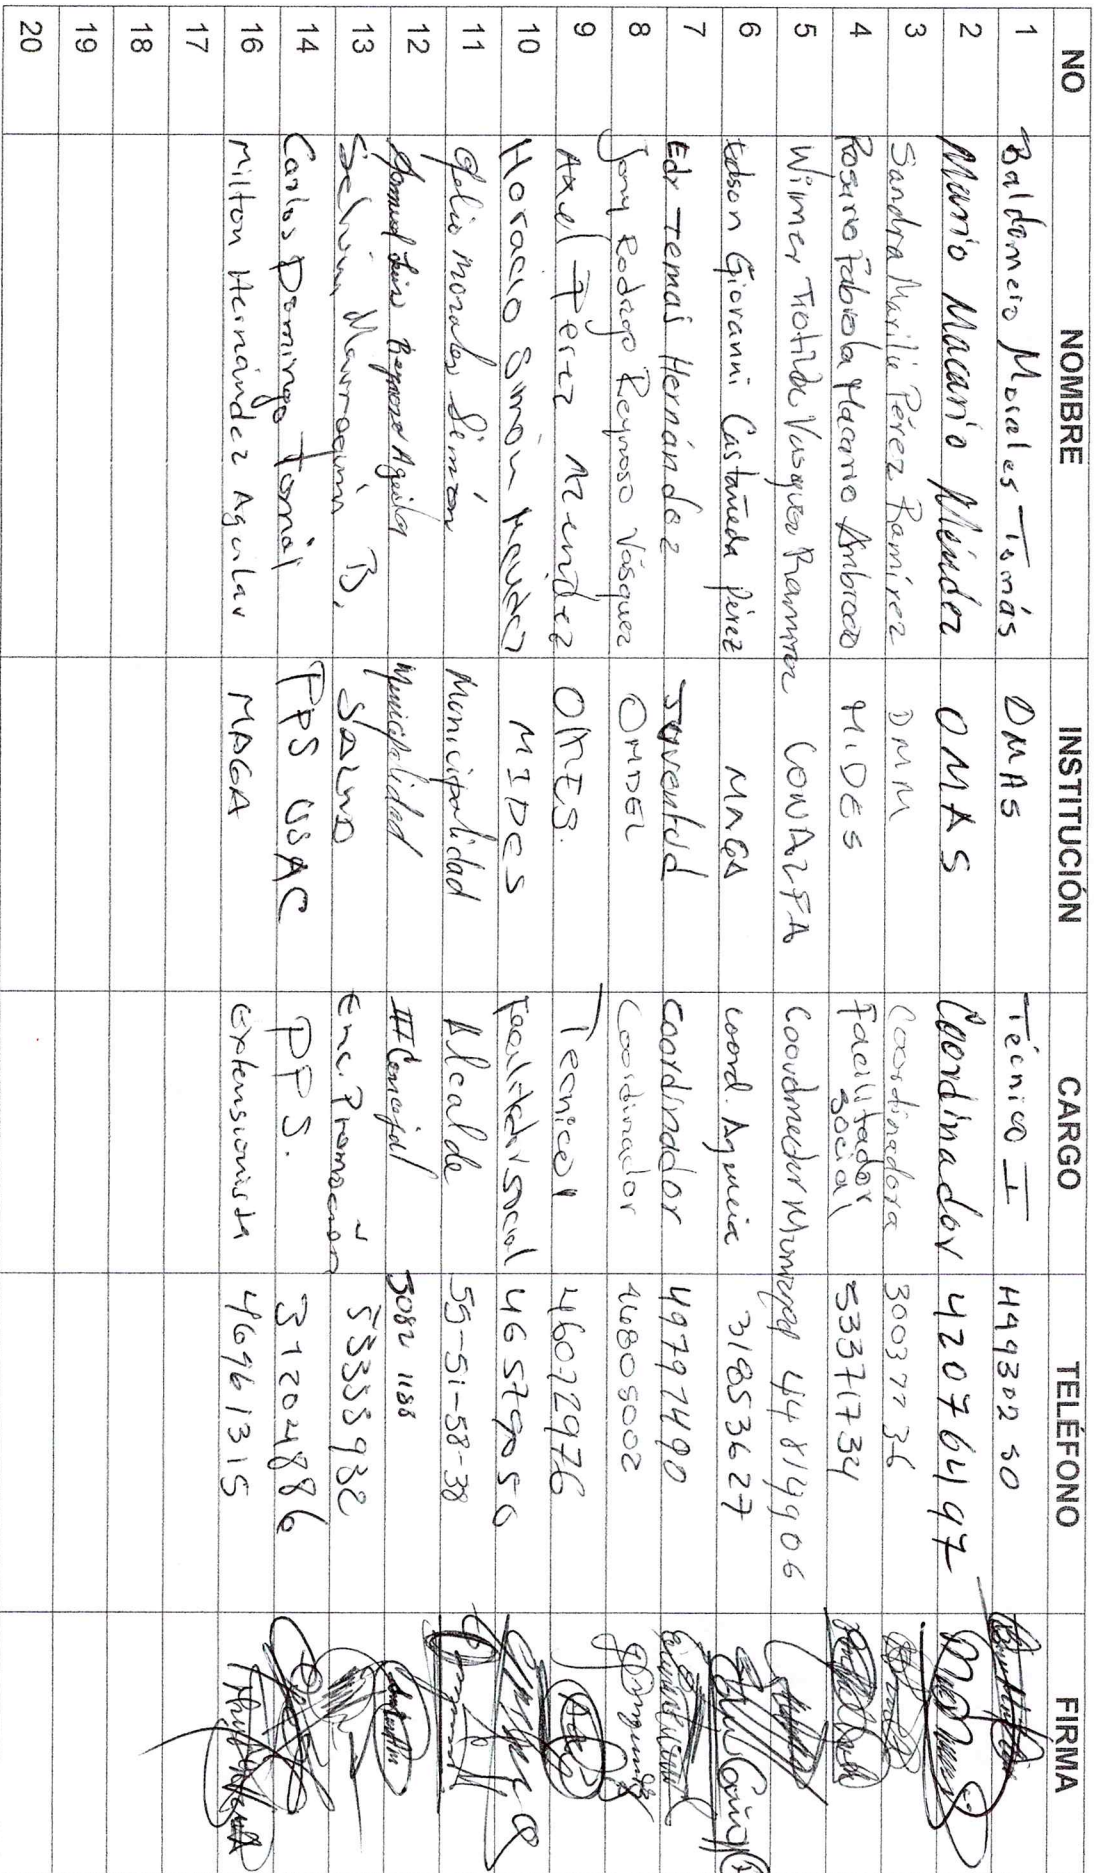 NO NOMBRE INSTITUCIÓN CARGO TELÉFONO FIRMA
1 Baldomero Morales Tomás DMAS Técnico I 449302 30
2 Mario Macario Méndez OMAS Coordinador 42076497
3 Sandra Marilú Pérez Ramírez DMM Coordinadora 30037736
4 Rosario Fabiola Macario Ambrocio MIDES Facilitador social 53371734
5 Wilmer Vasquez Ramirez CONALFA Coordinador Municipal 44814906
6 Edson Giovanni Castañeda Pérez MAGA coord. Agencia 31853627
7 Edy Temaj Hernández Juventud coordinador 49797490
8 Jony Rodrigo Reynoso Vásquez OMDEL Coordinador 46805002
9 Axel Perez Mendez Tecnico I 46072976
10 Horacio Simón Mendez MIDES Facilitador social 46579050
11 Morales Simón Municipalidad Alcalde 55-51-58-38
12 Reynoso Aguilar Municipalidad III Concejal 3082 1188
13 Selvin Marroquín B. SALUD Enc. Promoción 53355932
14 Carlos Domingo Tomás PPS USAC PPS. 31204886
16 Milton Hernández Aguilar MAGA extensionista 46961315
17
18
19
20